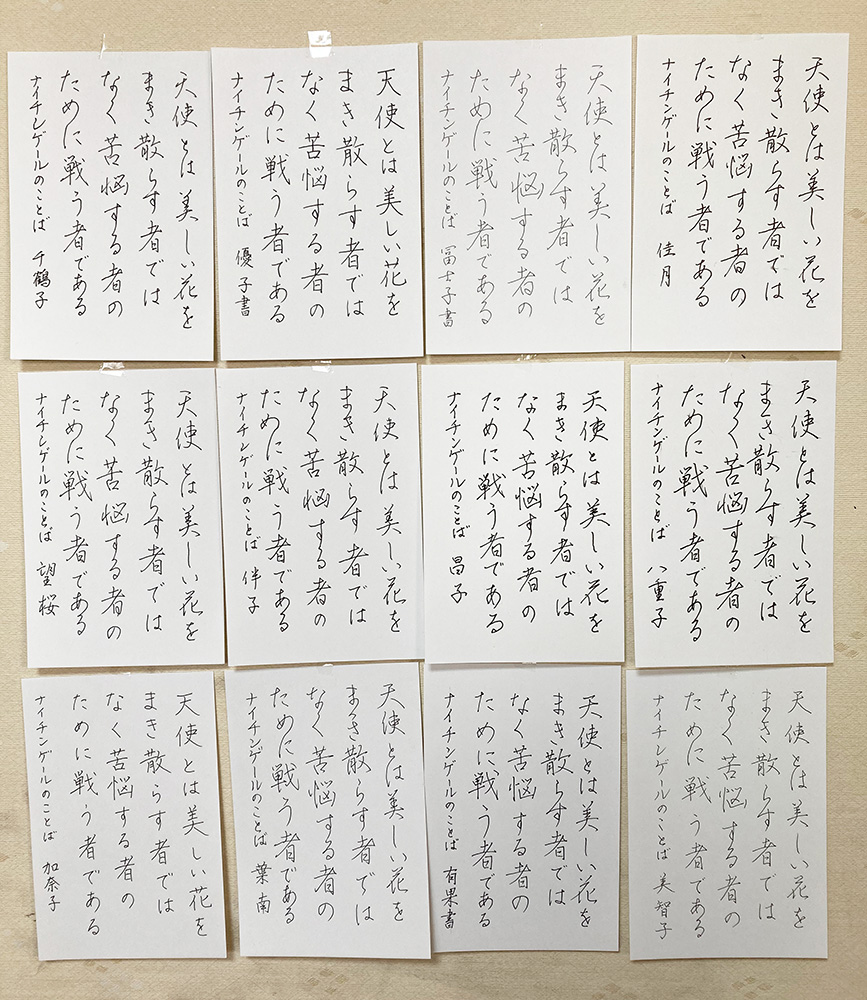 天使とは美しい花を
まき散らす者では
なく苦悩する者の
ために戦う者である
ナイチンゲールのことば 佳月
天使とは美しい花を
まき散らす者では
なく苦悩する者の
ために戦う者である
ナイチンゲールのことば 冨士子書
天使とは美しい花を
まき散らす者では
なく苦悩する者の
ために戦う者である
ナイチンゲールのことば 優子書
天使とは美しい花を
まき散らす者では
なく苦悩する者の
ために戦う者である
ナイチンゲールのことば 千鶴子
天使とは美しい花を
まき散らす者では
なく苦悩する者の
ために戦う者である
ナイチンゲールのことば 八重子
天使とは美しい花を
まき散らす者では
なく苦悩する者の
ために戦う者である
ナイチンゲールのことば 昌子
天使とは美しい花を
まき散らす者では
なく苦悩する者の
ために戦う者である
ナイチンゲールのことば 伴子
天使とは美しい花を
まき散らす者では
なく苦悩する者の
ために戦う者である
ナイチンゲールのことば 望桜
天使とは美しい花を
まき散らす者では
なく苦悩する者の
ために戦う者である
ナイチンゲールのことば 美智子
天使とは美しい花を
まき散らす者では
なく苦悩する者の
ために戦う者である
ナイチンゲールのことば 有果書
天使とは美しい花を
まき散らす者では
なく苦悩する者の
ために戦う者である
ナイチンゲールのことば 葉南
天使とは美しい花を
まき散らす者では
なく苦悩する者の
ために戦う者である
ナイチンゲールのことば 加奈子